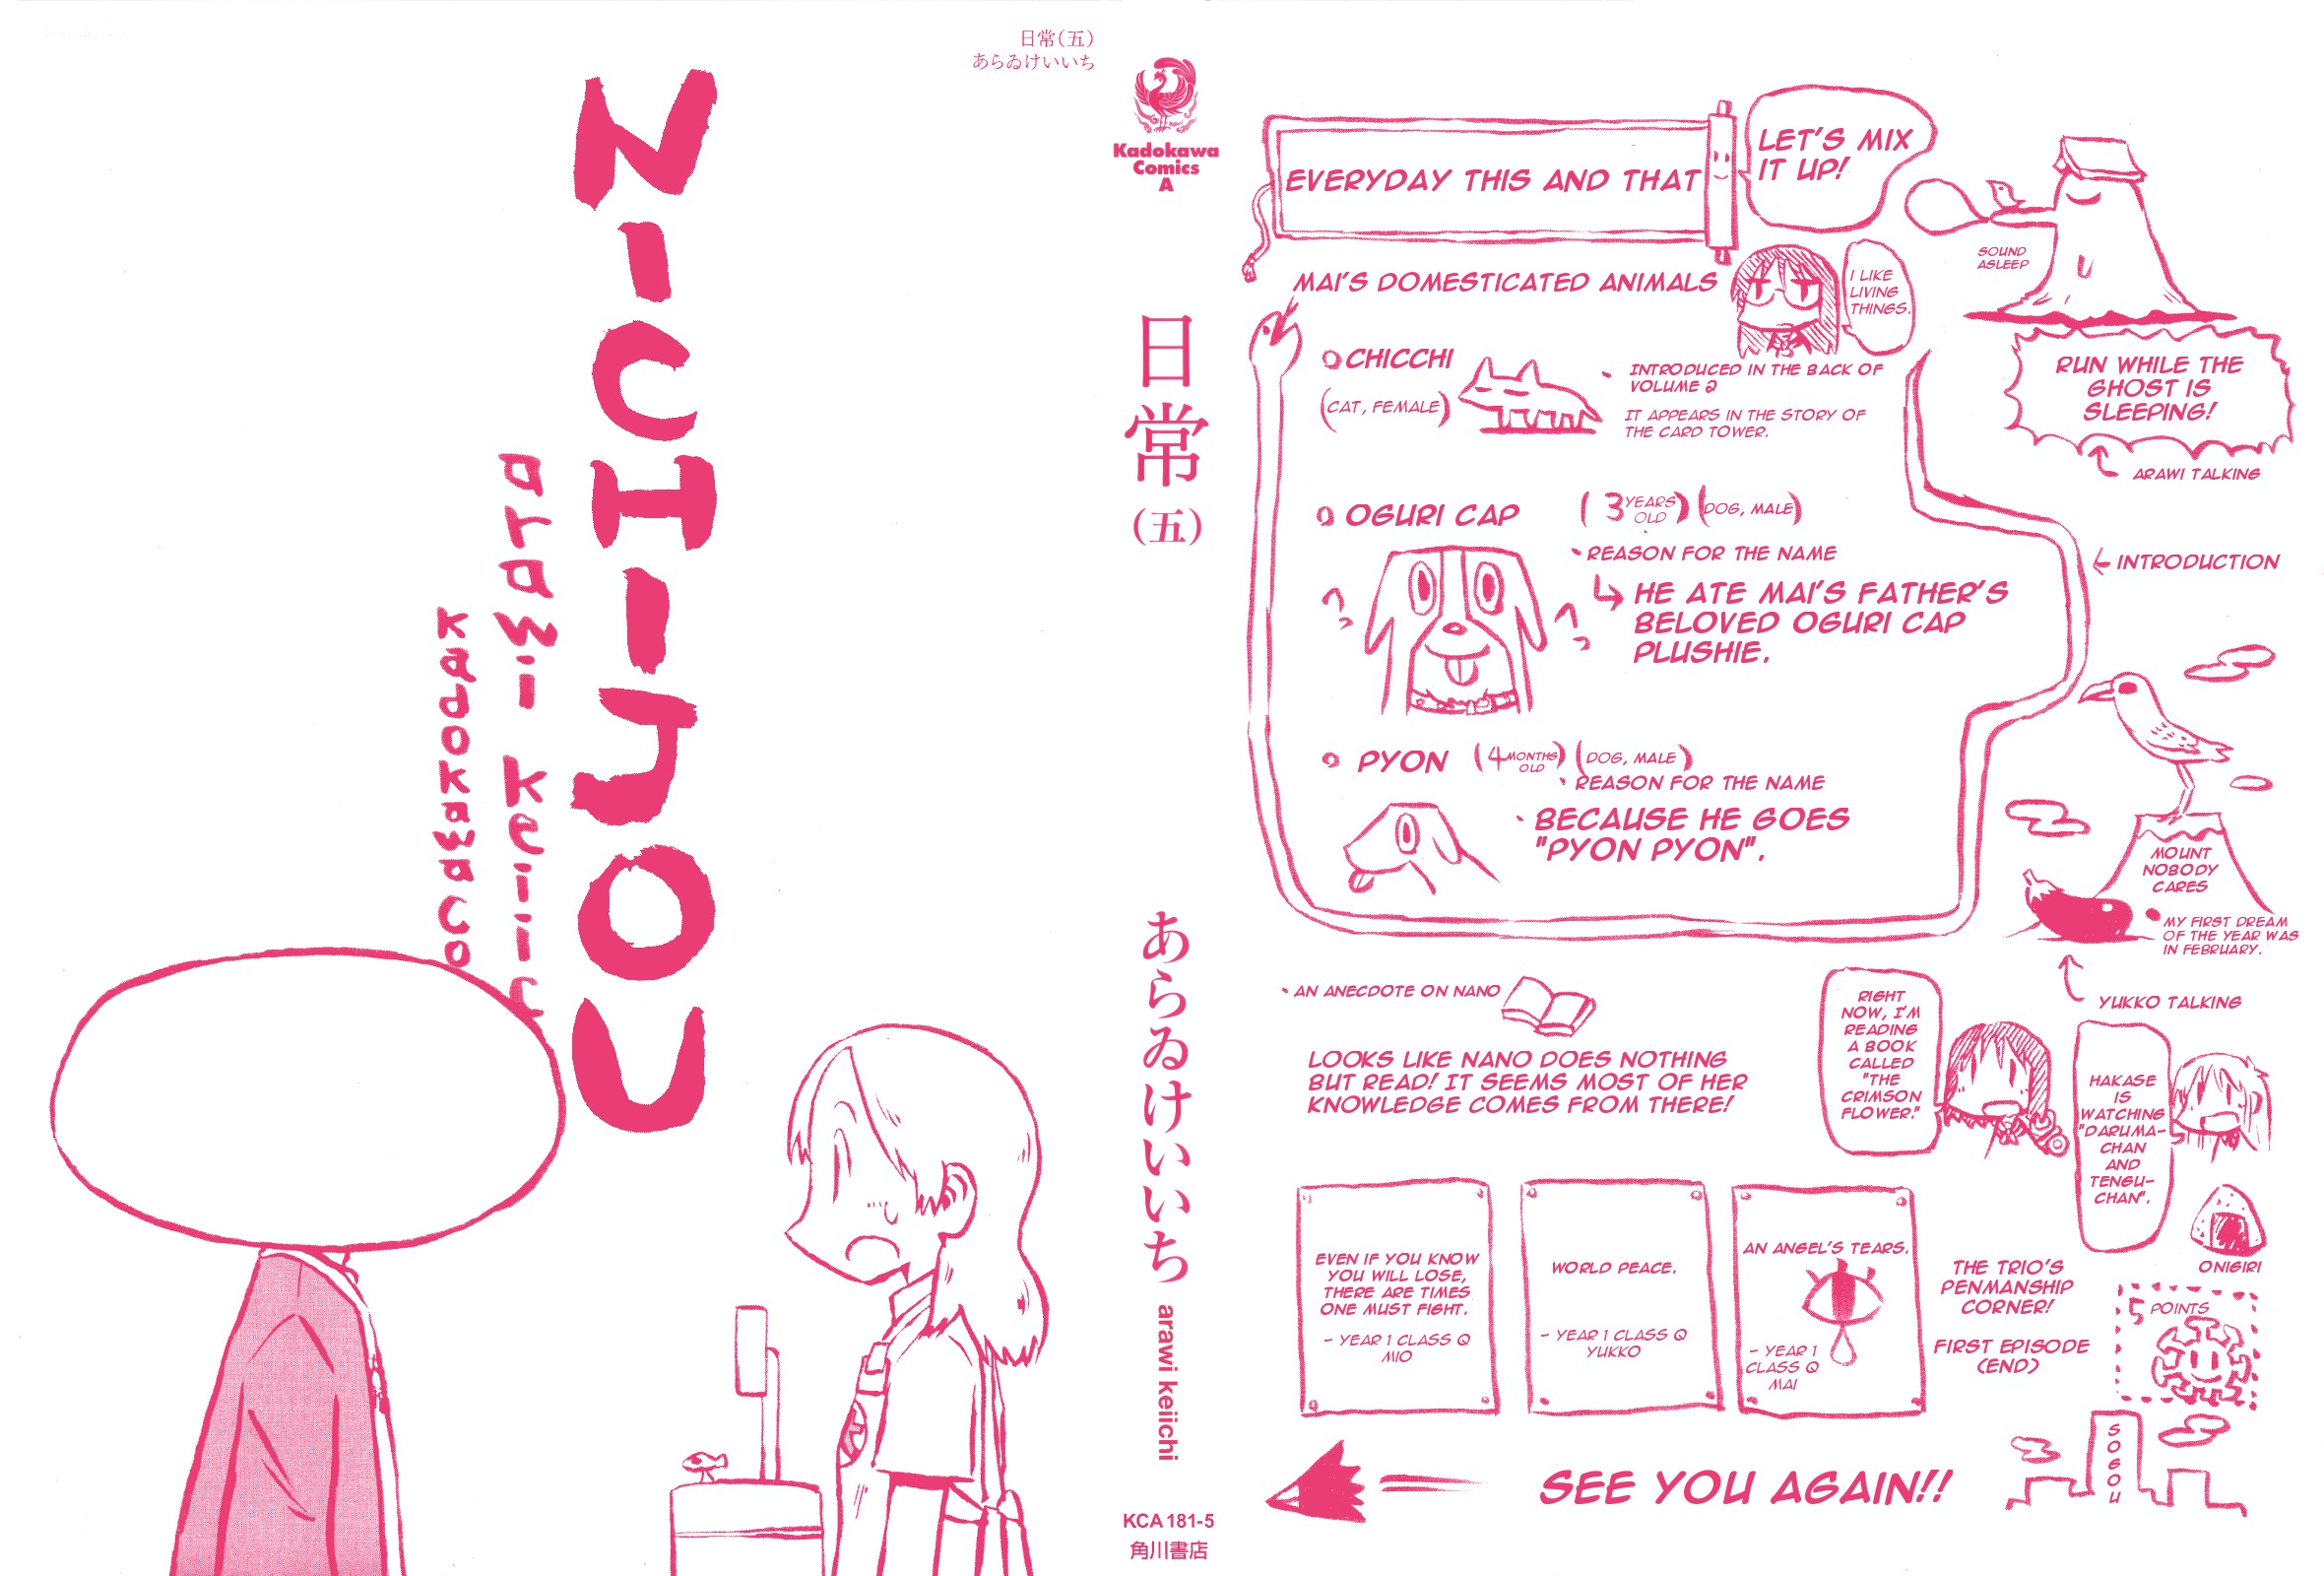 NICHIJOU
arawi keiic
KadokawaCo
日常(五)
あらゐけいいち
Kadokawa
Comics
A
日常
(五)
あらゐけいいち
arawi keiichi
KCA 181-5
角川書店
EVERYDAY THIS AND THAT
LET'S MIX
IT UP!
MAI'S DOMESTICATED ANIMALS
I LIKE
LIVING
THINGS.
SOUND
ASLEEP
RUN WHILE THE
GHOST IS
SLEEPING!
ARAWI TALKING
CHICCHI
(CAT, FEMALE)
INTRODUCED IN THE BACK OF
VOLUME 2
IT APPEARS IN THE STORY OF
THE CARD TOWER.
OGURI CAP
(3 YEARS
OLD) (DOG, MALE)
REASON FOR THE NAME
HE ATE MAI'S FATHER'S
BELOVED OGURI CAP
PLUSHIE.
へっ
へっ
INTRODUCTION
PYON
(4 MONTHS
OLD) (DOG, MALE)
REASON FOR THE NAME
BECAUSE HE GOES
"PYON PYON".
MOUNT
NOBODY
CARES
MY FIRST DREAM
OF THE YEAR WAS
IN FEBRUARY.
YUKKO TALKING
AN ANECDOTE ON NANO
LOOKS LIKE NANO DOES NOTHING
BUT READ! IT SEEMS MOST OF HER
KNOWLEDGE COMES FROM THERE!
RIGHT
NOW, I'M
READING
A BOOK
CALLED
"THE
CRIMSON
FLOWER."
HAKASE
IS
WATCHING
"DARUMA-
CHAN
AND
TENGU-
CHAN".
ONIGIRI
EVEN IF YOU KNOW
YOU WILL LOSE,
THERE ARE TIMES
ONE MUST FIGHT.
- YEAR 1 CLASS Q
MIO
WORLD PEACE.
- YEAR 1 CLASS Q
YUKKO
AN ANGEL'S TEARS.
- YEAR 1
CLASS Q
MAI
THE TRIO'S
PENMANSHIP
CORNER!
FIRST EPISODE
(END)
5 POINTS
SOGOU
SEE YOU AGAIN!!